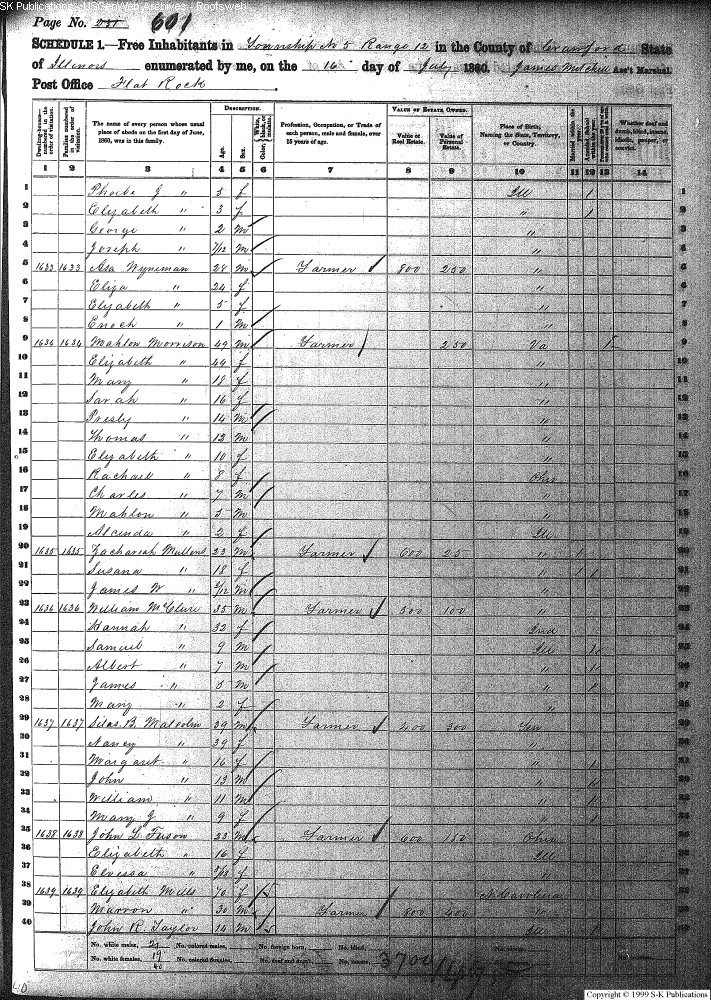 SK Publications - USGenWeb Archives - Rootsweb
Page No. 601
SCHEDULE 1.—Free Inhabitants in Township No 5 Range 12 in the County of Crawford State
of Illinois enumerated by me, on the 16 day of July 1860. James Mitchell Ass't Marshal.
Post Office Flat Rock
Dwelling-houses—numbered in the order of visitation.
Families numbered in the order of visitation.
The name of every person whose usual place of abode on the first day of June, 1860, was in this family.
DESCRIPTION.
Age.
Sex.
Color, White, black, or mulatto.
Profession, Occupation, or Trade of each person, male and female, over 15 years of age.
VALUE OF ESTATE OWNED.
Value of Real Estate.
Value of Personal Estate.
Place of Birth, Naming the State, Territory, or Country.
Married within the year.
Attended School within the year.
Whether deaf and dumb, blind, insane, idiotic, pauper, or convict.
1 2 3 4 5 6 7 8 9 10 11 12 13 14
1 Phoebe J " 5 f Ill 1 1
2 Elizabeth " 3 f " 1 2
3 George " 2 m " 3
4 Joseph " 7/12 m " 4
5 1633 1633 Asa Wyneman 28 m Farmer 800 250 " 5
6 Eliza " 24 f " 6
7 Elizabeth " 5 f " 7
8 Enoch " 1 m " 8
9 1634 1634 Mahlon Morrison 49 m Farmer 250 Va 9
10 Elizabeth " 44 f " 10
11 Mary " 18 f " 11
12 Sarah " 16 f " 12
13 Presly " 14 m " 13
14 Thomas " 12 m " 14
15 Elizabeth " 10 f " 15
16 Rachael " 8 f Ohio 16
17 Charles " 7 m " 17
18 Mahlon " 5 m " 18
19 Alcinda " 2 f Ill 19
20 1635 1635 Zachariah Mullens 23 m Farmer 600 25 " 1 20
21 Susana " 18 f " 1 1 21
22 James W " 3/12 m " 22
23 1636 1636 William McClure 35 m Farmer 500 100 " 23
24 Hannah " 32 f Ind 24
25 Samuel " 9 m Ill 1 25
26 Albert " 7 m " 1 26
27 James " 5 m " 1 27
28 Mary " 2 f " 28
29 1637 1637 Silas B. Malcolm 39 m Farmer 400 300 Ten 29
30 Nancy " 39 f " 30
31 Margaret " 16 f " 1 31
32 John " 13 m " 1 32
33 William " 11 m " 1 33
34 Mary J " 9 f " 1 34
35 1638 1638 John L Fuson 23 m Farmer 600 150 Ohio 35
36 Elizabeth " 16 f Ill 36
37 f " 37
38 1639 1639 Elizabeth Mills 70 f N Carolina 38
39 " 30 m Farmer 800 400 " 39
40 John R. Taylor 14 m Ill 1 40
No. white males, 21 No. colored males, No. foreign born, No. blind,
No. white females, 19 No. colored females, No. deaf and dumb,
40
3700
40
Copyright © 1999 S-K Publications